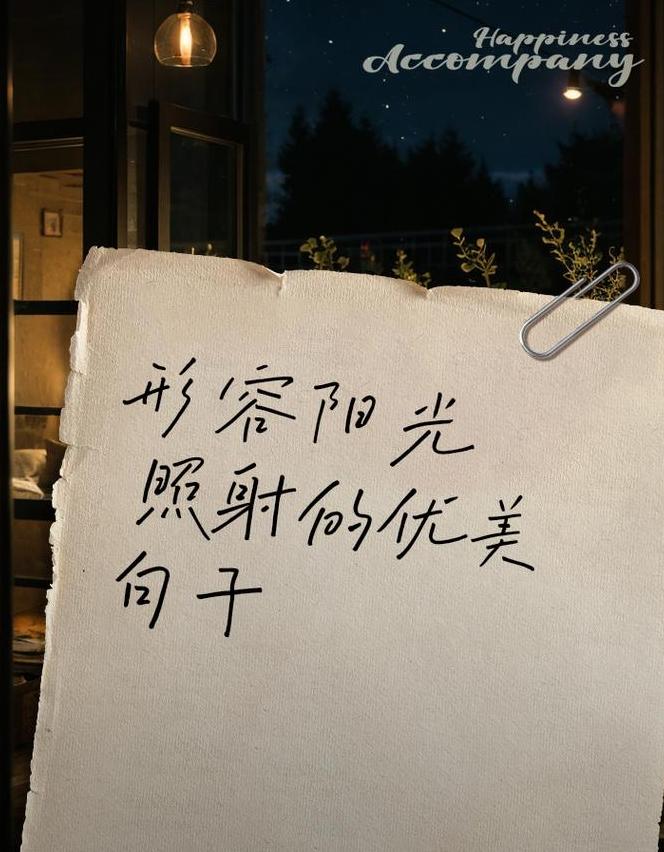 Happiness
Accompany
形容阳光
照射的优美
句子